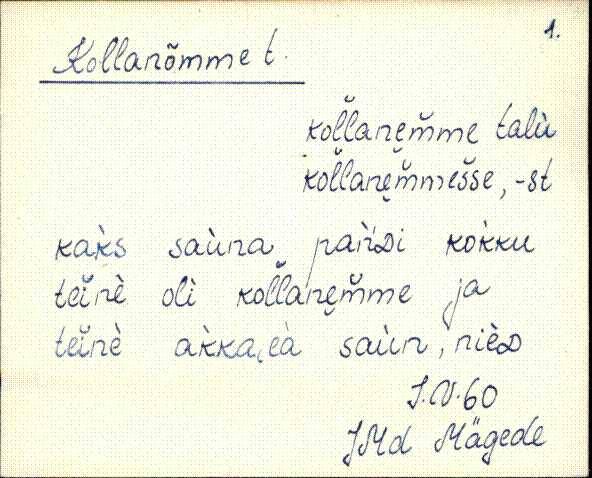 1.
Kollanõmme t.
kol̆lanem̆me talù
kol̆lanę̆m̆mes̆se, -st
kaks saùna pańDi kokku
tei̯nè oli kol̆lanę̆m̆me ja
tei̯nè akka,eà saùn, nièD
J.V.60
JMd Mägede